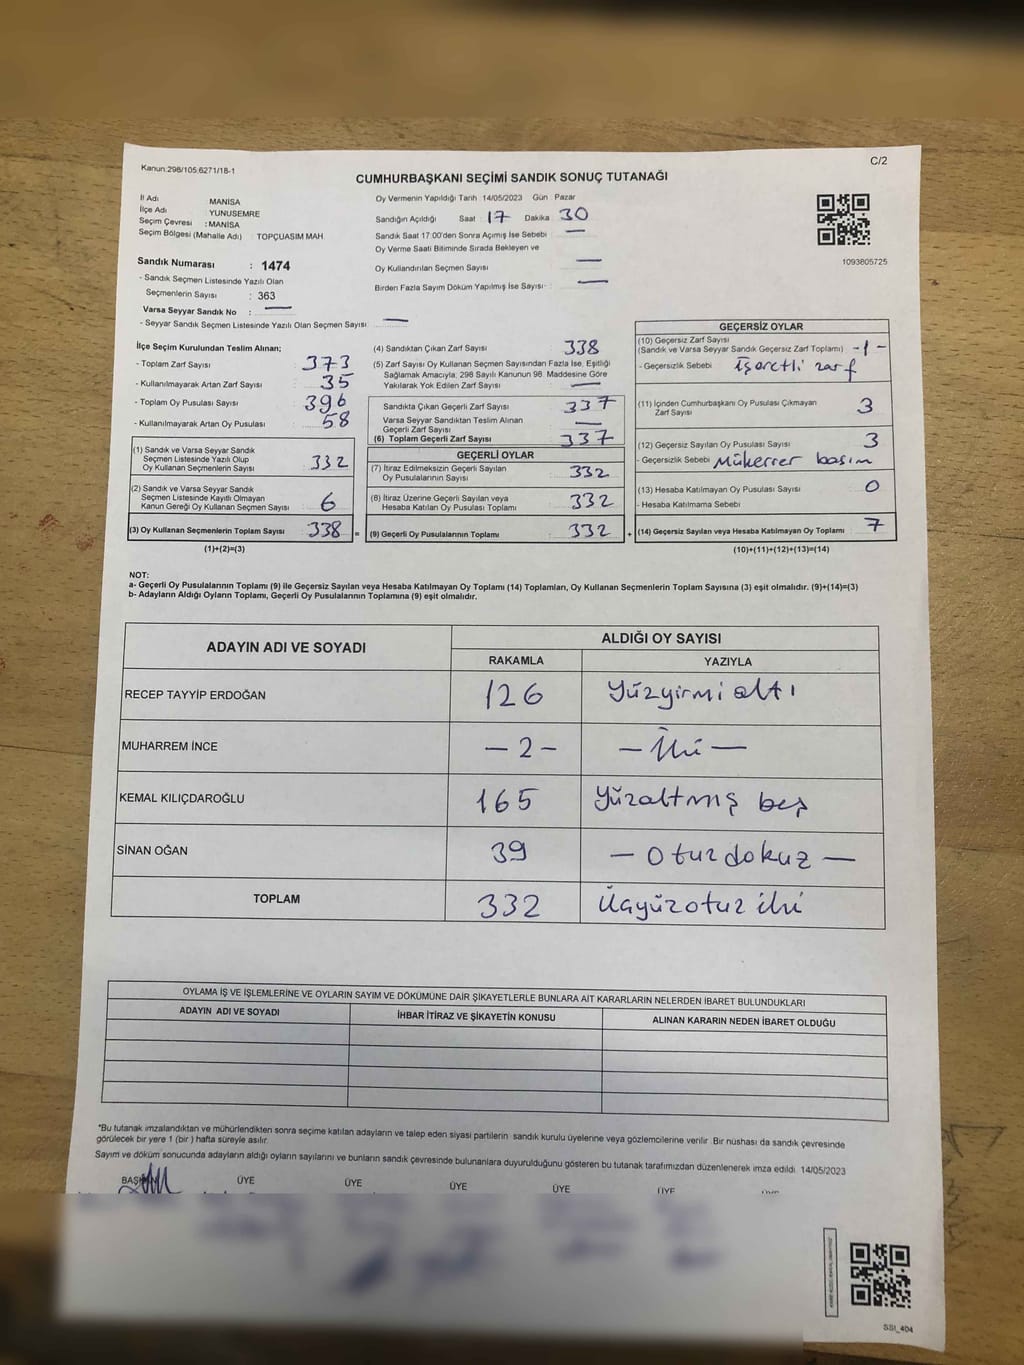 Kanun:298/105;6271/18-1
C/2
CUMHURBAŞKANI SEÇİMİ SANDIK SONUÇ TUTANAĞI
İl Adı MANİSA
İlçe Adı : YUNUSEMRE
Seçim Çevresi : MANİSA
Seçim Bölgesi (Mahalle Adı) : TOPÇUASIM MAH.
Sandık Numarası : 1474
- Sandık Seçmen Listesinde Yazılı Olan
Seçmenlerin Sayısı : 363
Varsa Seyyar Sandık No : —
- Seyyar Sandık Seçmen Listesinde Yazılı Olan Seçmen Sayısı : —
Oy Vermenin Yapıldığı Tarih 14/05/2023 Gün Pazar
Sandığın Açıldığı Saat 17 Dakika 30
Sandık Saat 17:00'den Sonra Açımış İse Sebebi —
Oy Verme Saati Bitiminde Sırada Bekleyen ve
Oy Kullandırılan Seçmen Sayısı —
Birden Fazla Sayım Döküm Yapılmış İse Sayısı- : —
1093805725
İlçe Seçim Kurulundan Teslim Alınan;
- Toplam Zarf Sayısı : 373
- Kullanılmayarak Artan Zarf Sayısı : 35
- Toplam Oy Pusulası Sayısı : 396
- Kullanılmayarak Artan Oy Pusulası : 58
(1) Sandık ve Varsa Seyyar Sandık
Seçmen Listesinde Yazılı Olup
Oy Kullanan Seçmenlerin Sayısı : 332
(2) Sandık ve Varsa Seyyar Sandık
Seçmen Listesinde Kayıtlı Olmayan
Kanun Gereği Oy Kullanan Seçmen Sayısı : 6
(3) Oy Kullanan Seçmenlerin Toplam Sayısı : 338
(1)+(2)=(3)
=
(4) Sandıktan Çıkan Zarf Sayısı 338
(5) Zarf Sayısı Oy Kullanan Seçmen Sayısından Fazla İse, Eşitliği
Sağlamak Amacıyla; 298 Sayılı Kanunun 98. Maddesine Göre
Yakılarak Yok Edilen Zarf Sayısı : —
Sandıkta Çıkan Geçerli Zarf Sayısı : 337
Varsa Seyyar Sandıktan Teslim Alınan
Geçerli Zarf Sayısı : —
(6) Toplam Geçerli Zarf Sayısı : 337
GEÇERLİ OYLAR
(7) İtiraz Edilmeksizin Geçerli Sayılan
Oy Pusulalarının Sayısı : 332
(8) İtiraz Üzerine Geçerli Sayılan veya
Hesaba Katılan Oy Pusulası Toplamı : 332
(9) Geçerli Oy Pusulalarının Toplamı : 332
+
GEÇERSİZ OYLAR
(10) Geçersiz Zarf Sayısı
(Sandık ve Varsa Seyyar Sandık Geçersiz Zarf Toplamı) -1-
- Geçersizlik Sebebi İşaretli zarf
(11) İçinden Cumhurbaşkanı Oy Pusulası Çıkmayan
Zarf Sayısı 3
(12) Geçersiz Sayılan Oy Pusulası Sayısı 3
- Geçersizlik Sebebi Mükerrer basım
(13) Hesaba Katılmayan Oy Pusulası Sayısı 0
- Hesaba Katılmama Sebebi
(14) Geçersiz Sayılan veya Hesaba Katılmayan Oy Toplamı 7
(10)+(11)+(12)+(13)=(14)
NOT:
a- Geçerli Oy Pusulalarının Toplamı (9) ile Geçersiz Sayılan veya Hesaba Katılmayan Oy Toplamı (14) Toplamları, Oy Kullanan Seçmenlerin Toplam Sayısına (3) eşit olmalıdır. (9)+(14)=(3)
b- Adayların Aldığı Oyların Toplamı, Geçerli Oy Pusulalarının Toplamına (9) eşit olmalıdır.
ADAYIN ADI VE SOYADI
ALDIĞI OY SAYISI
RAKAMLA YAZIYLA
RECEP TAYYİP ERDOĞAN 126 Yüzyirmi altı
MUHARREM İNCE — 2 — — İki —
KEMAL KILIÇDAROĞLU 165 Yüzaltmış beş
SİNAN OĞAN 39 — Otuzdokuz —
TOPLAM 332 Üçyüzotuz iki
OYLAMA İŞ VE İŞLEMLERİNE VE OYLARIN SAYIM VE DÖKÜMÜNE DAİR ŞİKAYETLERLE BUNLARA AİT KARARLARIN NELERDEN İBARET BULUNDUKLARI
ADAYIN ADI VE SOYADI İHBAR İTİRAZ VE ŞİKAYETİN KONUSU ALINAN KARARIN NEDEN İBARET OLDUĞU
*Bu tutanak imzalandıktan ve mühürlendikten sonra seçime katılan adayların ve talep eden siyasi partilerin sandık kurulu üyelerine veya gözlemcilerine verilir. Bir nüshası da sandık çevresinde
görülecek bir yere 1 (bir) hafta süreyle asılır.
Sayım ve döküm sonucunda adayların aldığı oyların sayılarını ve bunların sandık çevresinde bulunanlara duyurulduğunu gösteren bu tutanak tarafımızdan düzenlenerek imza edildi. 14/05/2023
BAŞKAN ÜYE ÜYE ÜYE ÜYE ÜYE ÜYE
SSI_404